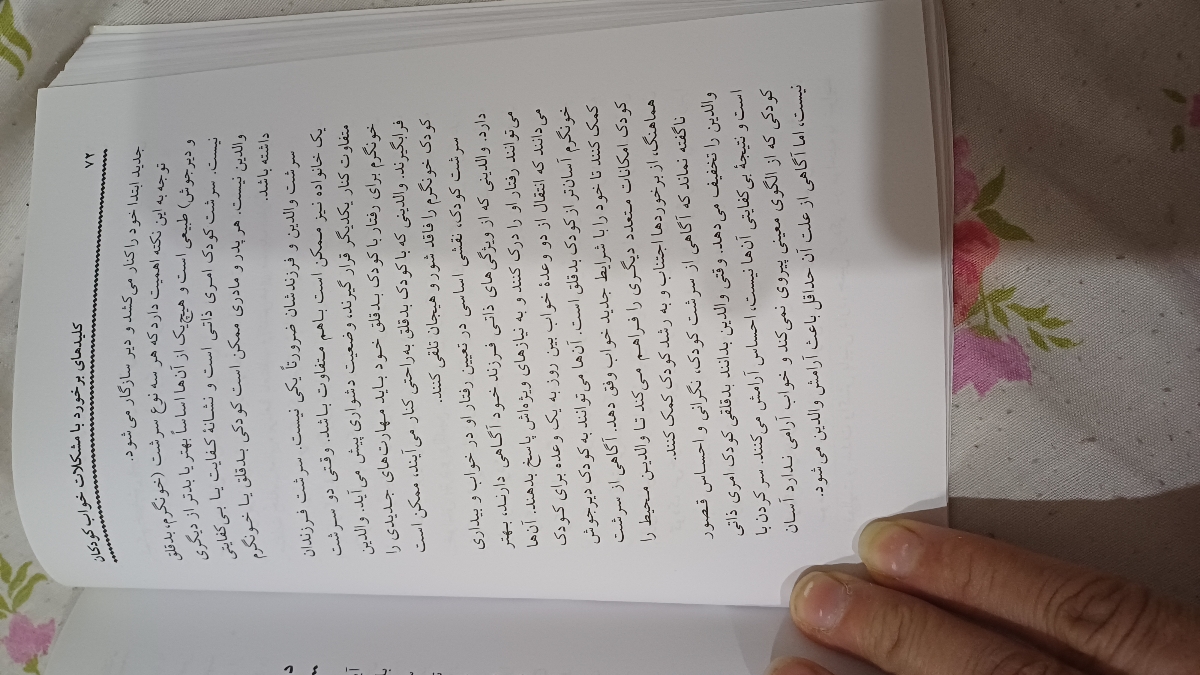 ۷۲ کلیدهای برخورد با مشکلات خواب کودکان
جدید ابتدا خود را کنار می‌کشند و دیر سازگار می‌شود.
توجه به این نکته اهمیت دارد که هر سه نوع سرشت (خونگرم، بدقلق
و دیرجوش) طبیعی است و هیچ یک از آن‌ها اساساً بهتر یا بدتر از دیگری
نیست. سرشت کودک امری ذاتی است و نشانهٔ کفایت یا بی‌کفایتی
والدین نیست. هر پدر و مادری ممکن است کودکی بدقلق یا خونگرم
داشته باشد.
سرشت والدین و فرزندشان ضرورتاً یکی نیست. سرشت فرزندان
یک خانواده نیز ممکن است باهم متفاوت باشد. وقتی دو سرشت
متفاوت کنار یکدیگر قرار گیرند، وضعیت دشواری پیش می‌آید. والدین
خونگرم برای رفتار با کودک بدقلق خود باید مهارت‌های جدیدی را
فراگیرند. والدینی که با کودک بدقلق به‌راحتی کنار می‌آیند، ممکن است
کودک خونگرم را فاقد شور و هیجان تلقی کنند.
سرشت کودک، نقشی اساسی در تعیین رفتار او در خواب و بیداری
دارد. والدینی که از ویژگی‌های ذاتی فرزند خود آگاهی دارند، بهتر
می‌توانند رفتار او را درک کنند و به نیازهای ویژه‌اش پاسخ بدهند. آن‌ها
می‌دانند که انتقال از دو وعدهٔ خواب بین روز به یک وعده برای کودک
خونگرم آسان‌تر از کودک بدقلق است. آن‌ها می‌توانند به کودک دیرجوش
کمک کنند تا خود را با شرایط جدید خواب وفق دهد. آگاهی از سرشت
کودک امکانات متعدد دیگری را فراهم می‌کند تا والدین محیط را
هماهنگ، از برخوردها اجتناب و به رشد کودک کمک کنند.
ناگفته نماند که آگاهی از سرشت کودک، نگرانی و احساس قصور
والدین را تخفیف می‌دهد. وقتی والدین بدانند بدقلقی کودک امری ذاتی
است و نتیجهٔ بی‌کفایتی آن‌ها نیست، احساس آرامش می‌کنند. سر کردن با
کودکی که از الگوی معینی پیروی نمی‌کند و خواب آرامی ندارد آسان
نیست، اما آگاهی از علت آن حداقل باعث آرامش والدین می‌شود.